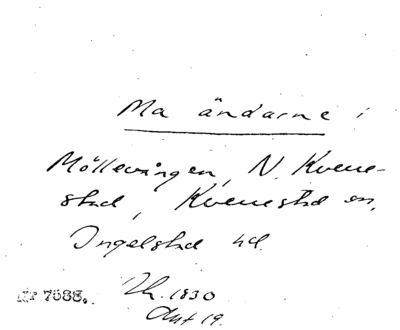 Ma ändarne i
Möllevången, N. Kvene-
stad, Kvenestad sn,
Ingelstad hd.
Nr 7588. Th. 1830
Akt 19.